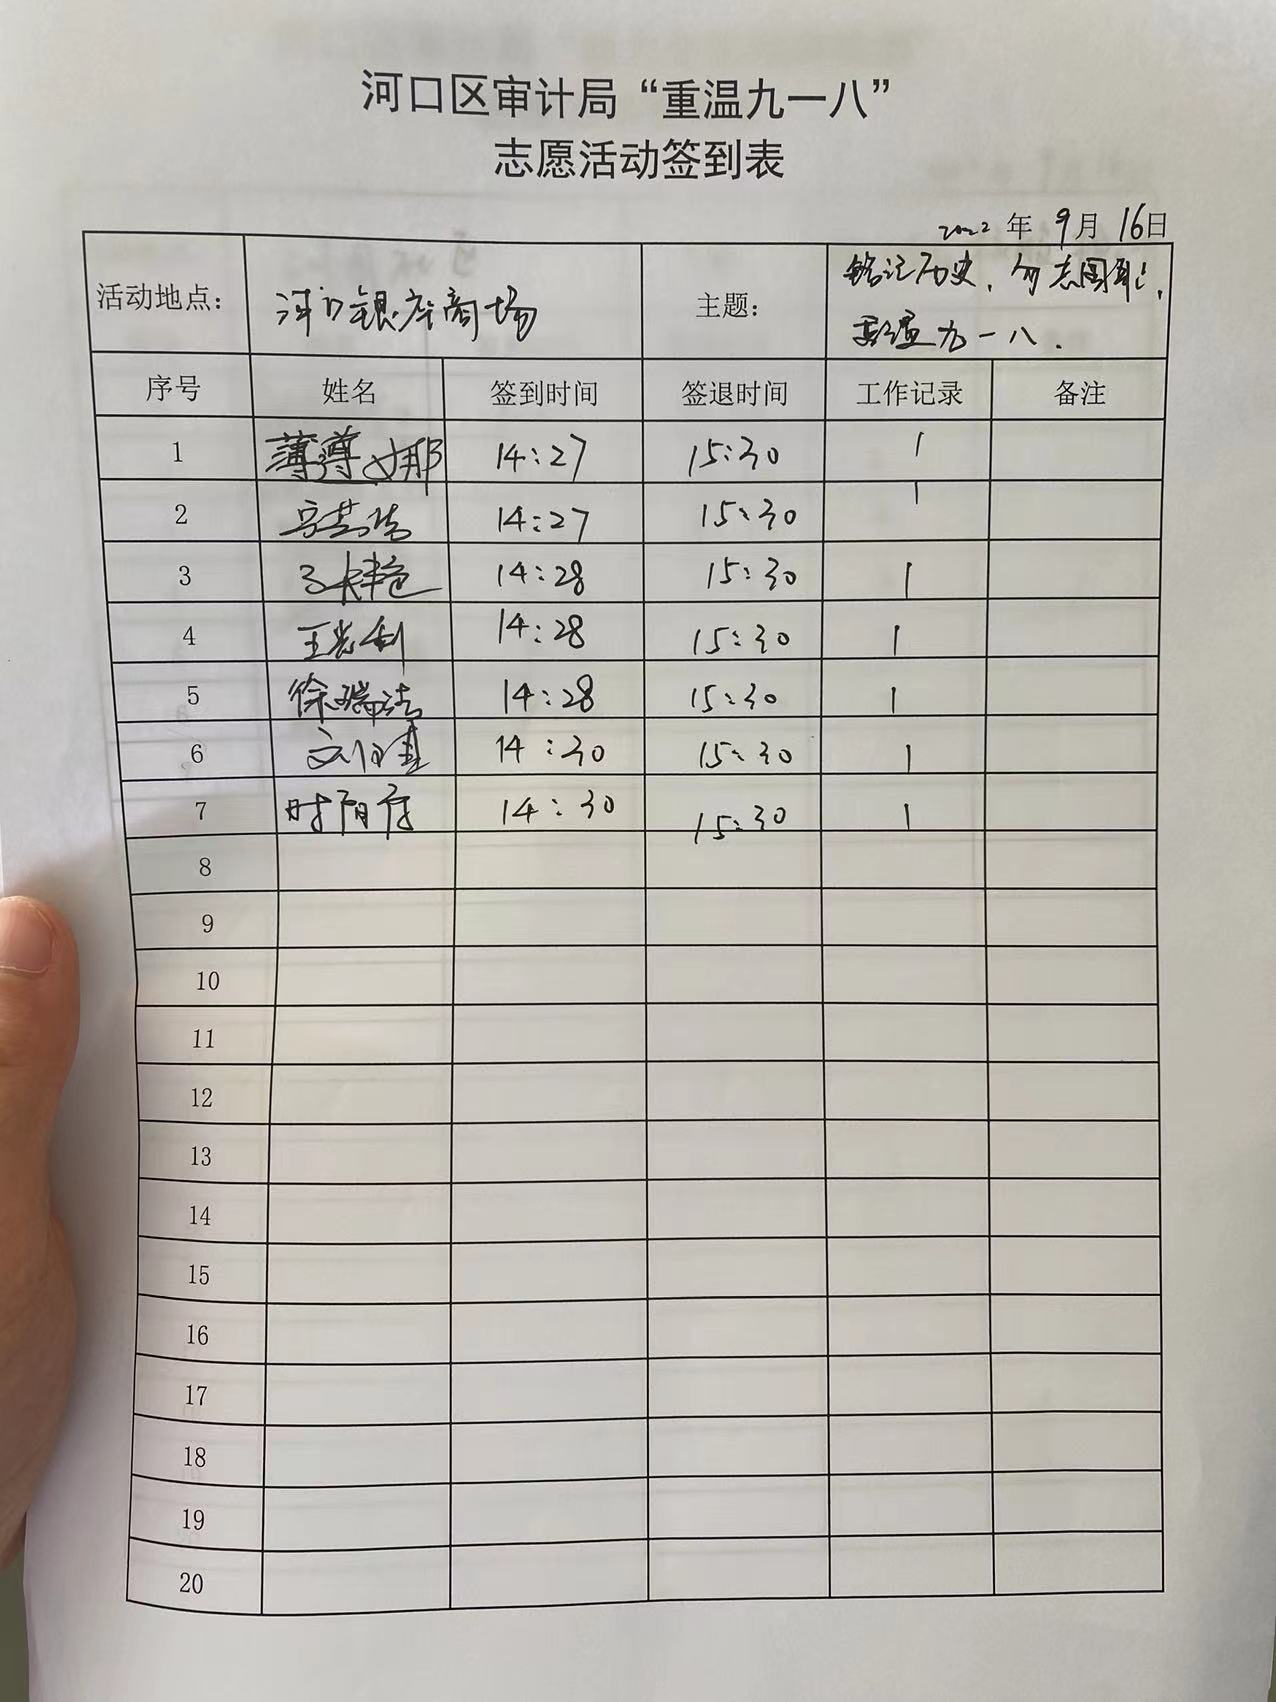 河口区审计局“重温九一八”
志愿活动签到表
2022年9月16日
活动地点： 河口银座商场 主题： 铭记历史，勿忘国耻，
重温九一八.
序号 姓名 签到时间 签退时间 工作记录 备注
1 薄遵娜 14:27 15:30 1
2 14:27 15:30 1
3 14:28 15:30 1
4 王光利 14:28 15:30 1
5 徐瑞洁 14:28 15:30 1
6 14:30 15:30 1
7 14:30 15:30 1
8
9
10
11
12
13
14
15
16
17
18
19
20